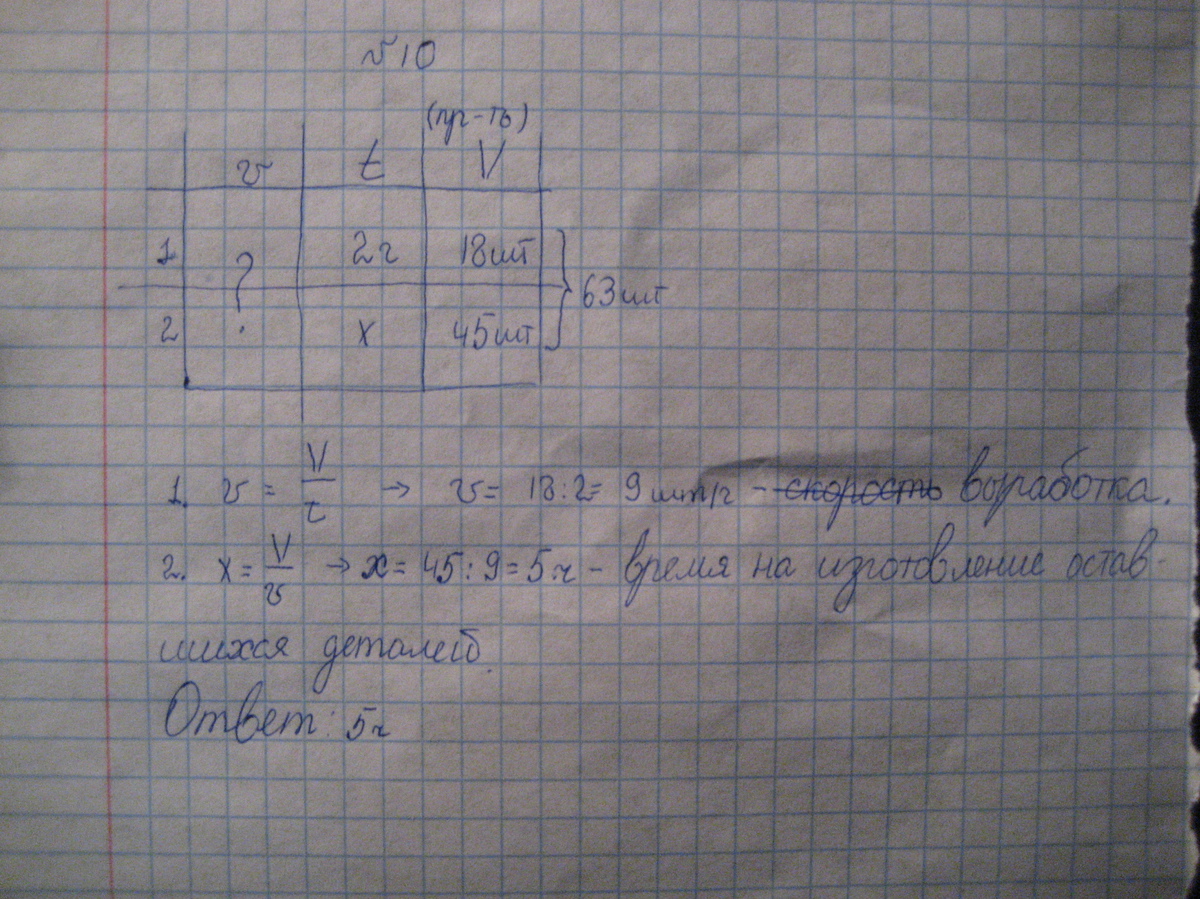 №10
(пр-ть)
v t V
1 ? 2ч 18шт
63шт
2 x 45шт
1. v = V/t → v = 18:2= 9шт/ч - скорость выработка.
2. x = V/v → x = 45:9=5ч - время на изготовление остав-
шихся деталей.
Ответ: 5ч